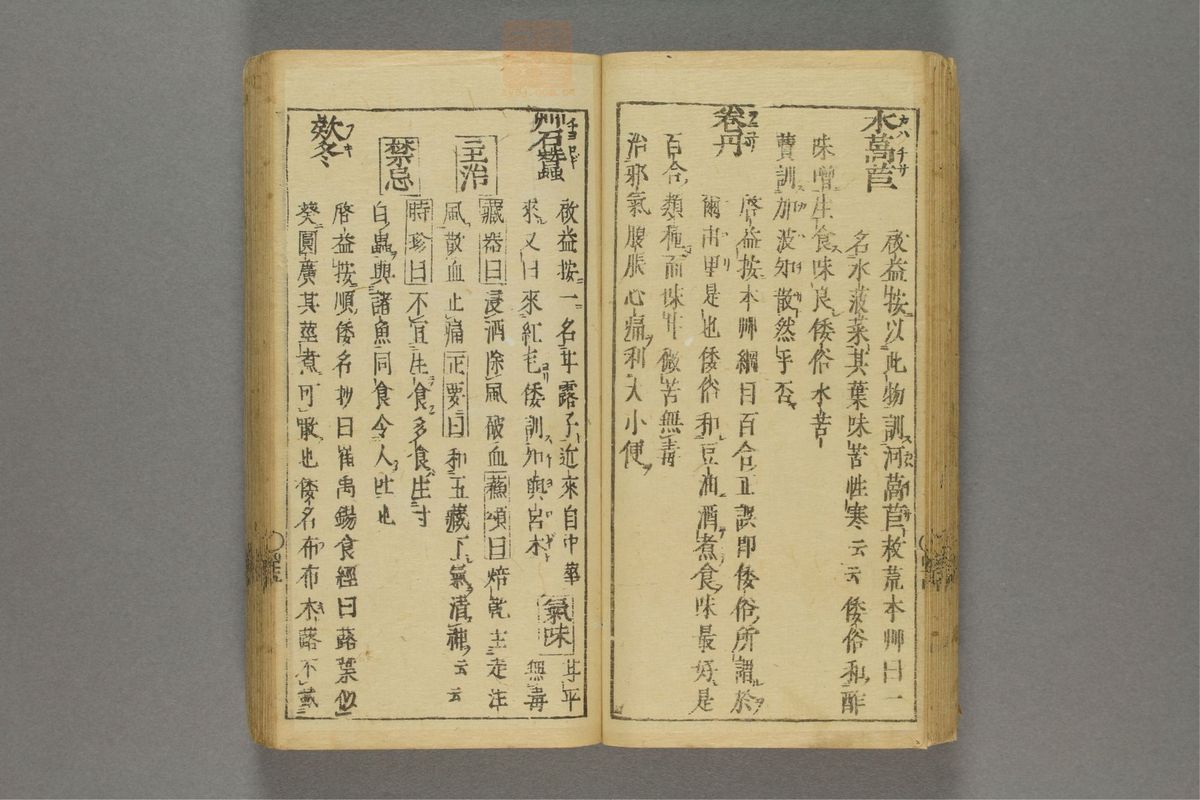 水萵苣 カハチサ
啓益按以此物訓河萵苣救荒本艸曰一
名水菠菜其葉味苦性寒云云倭俗和酢
味噌生食味良倭俗水苦
蕒訓加波知散然乎否
卷丹
啓益按本艸綱目百合正誤即倭俗所謂於
爾由里是也倭俗和豆油酒煮食味最好是
百合類種而味甘微苦無毒
治邪氣腹脹心痛利大小便
艸石蠶 チヨロギ
啓益按一名甘露子近來自中華
來又曰來紅毛倭訓知與呂木 氣味 甘平
無毒
主治 藏器曰浸酒除風破血蘇頌曰焙乾主走注
風散血止痛正要曰和五藏下氣清神云云
禁忌 時珍曰不宜生食多食生寸
白蟲與諸魚同食令人吐也
欵冬 フキ
啓益按順倭名抄曰崔禹錫食經曰蕗葉似
葵圓廣其莖煮可噉也倭名布布木蕗不載